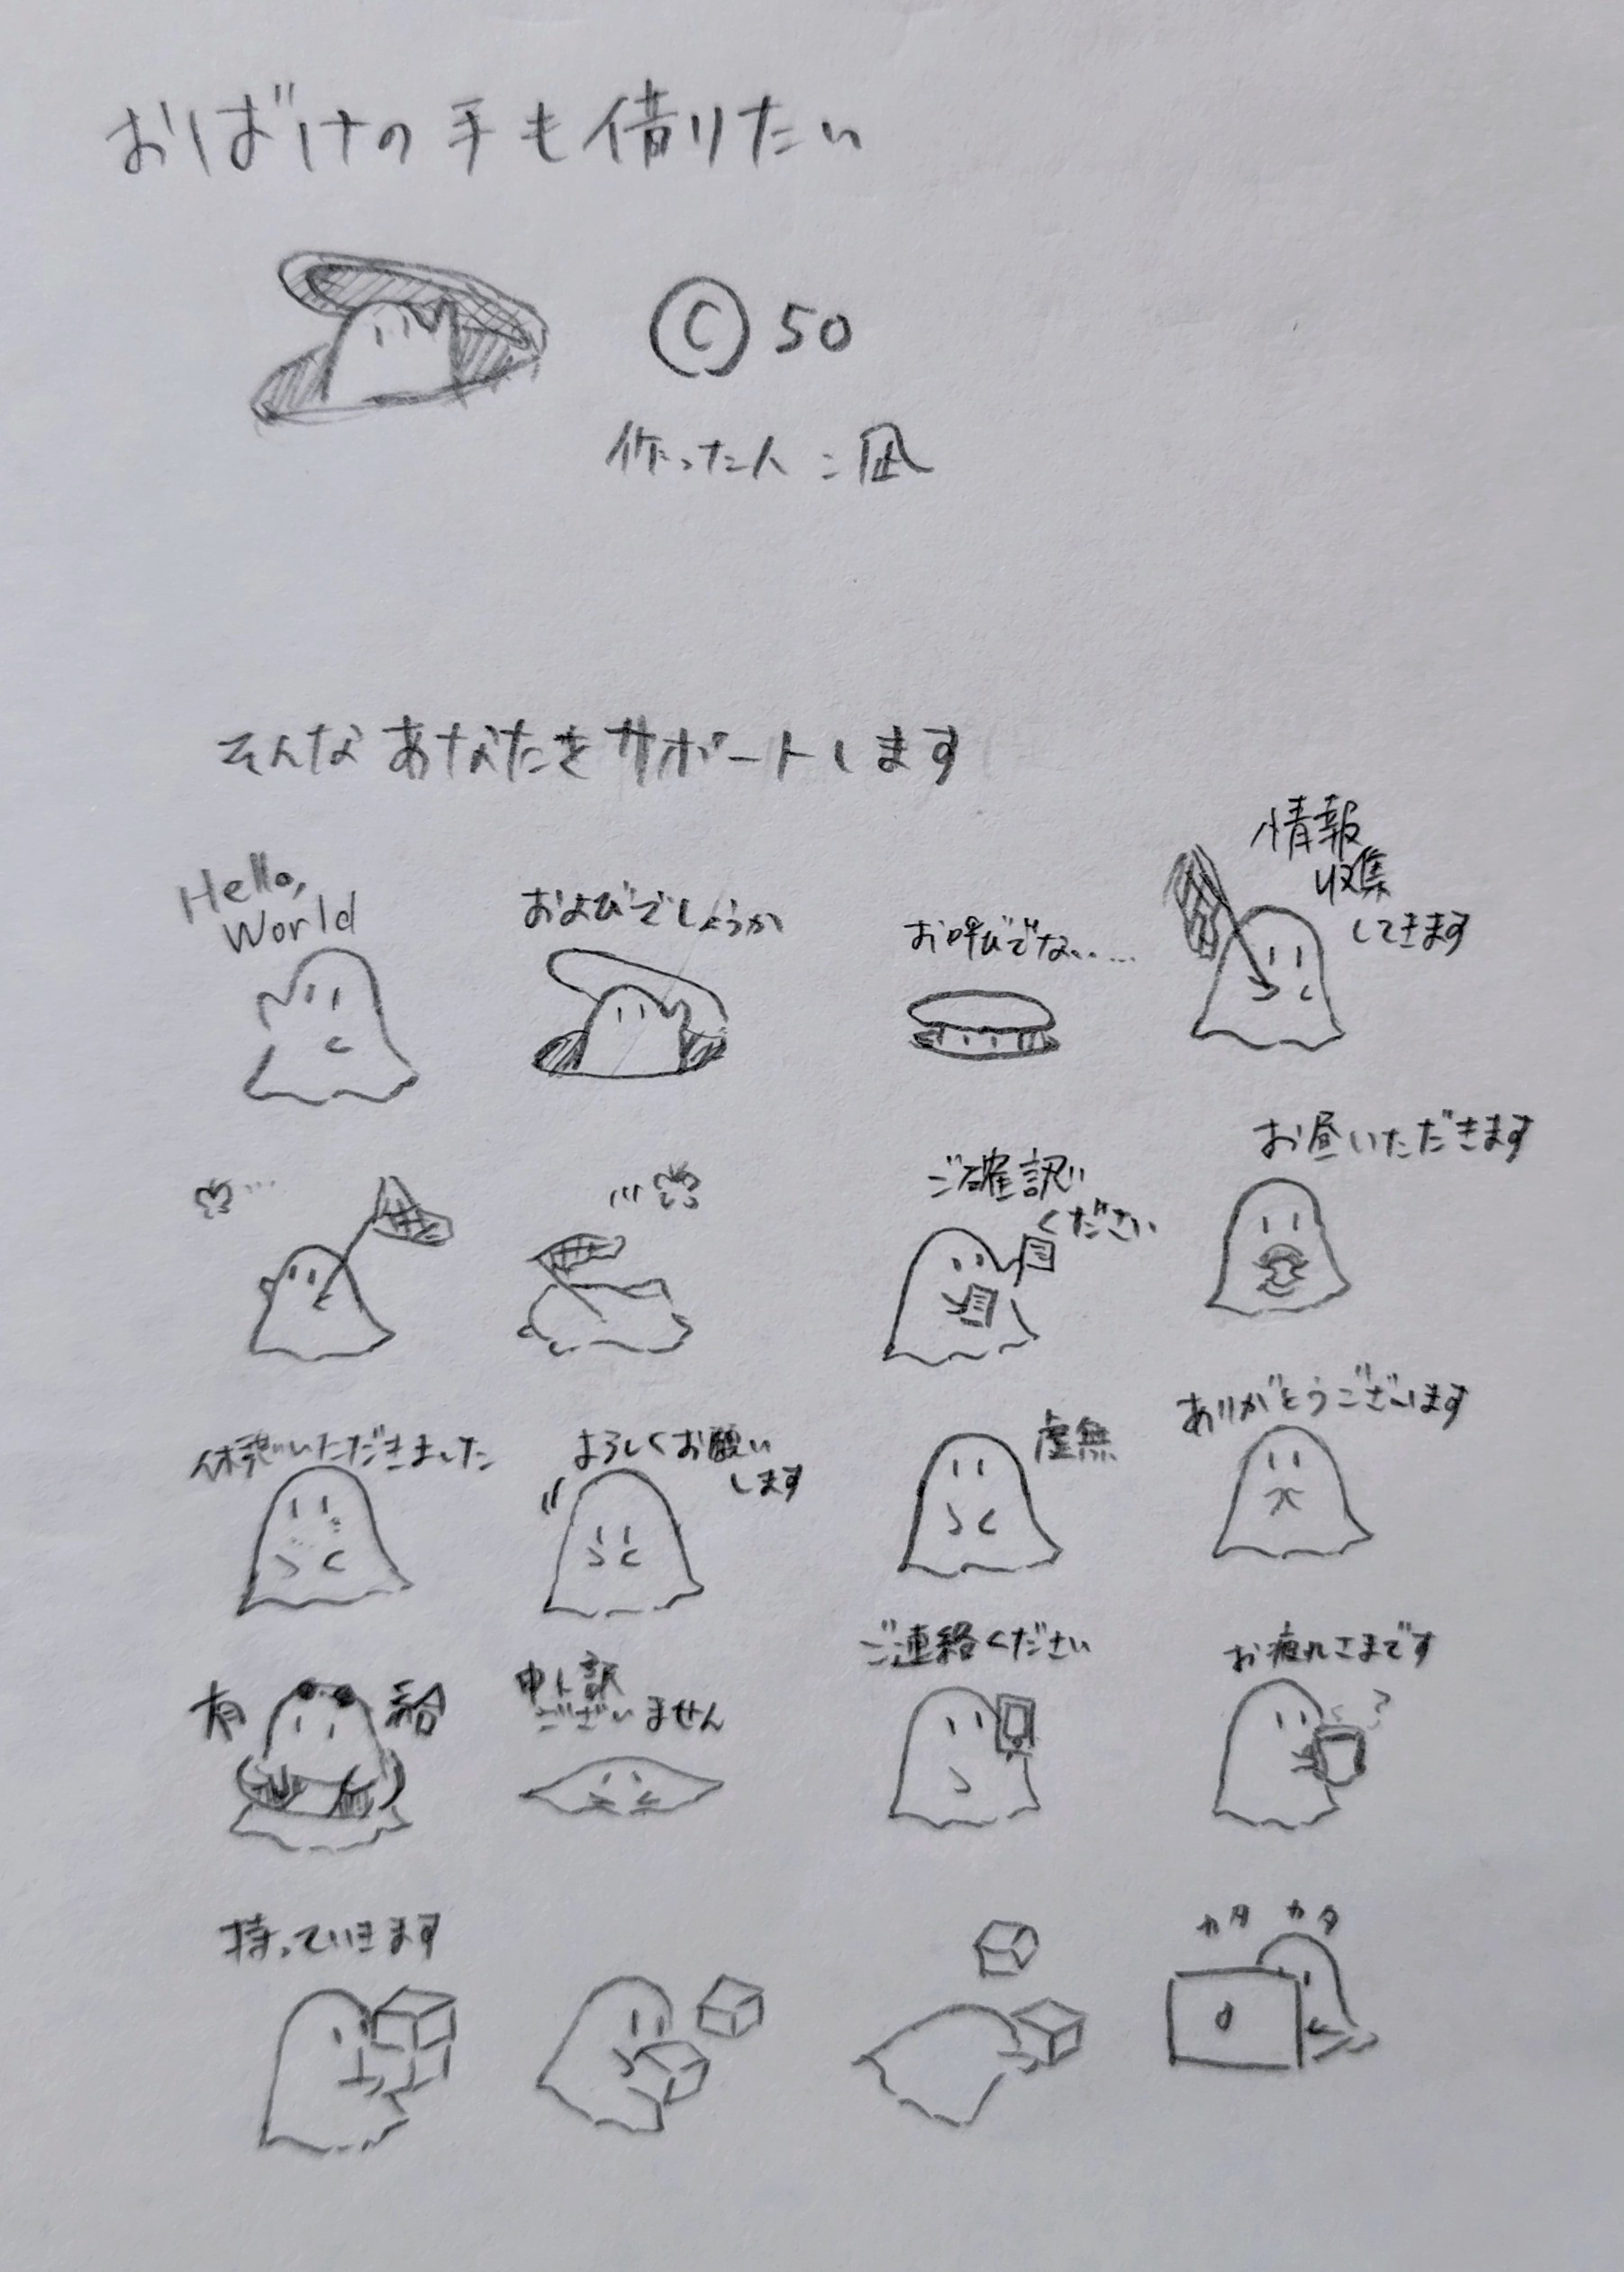 おばけの手も借りたい
Ⓒ 50
作った人:凪
そんなあなたをサポートします
Hello,
World
およびでしょうか
お呼びでない……
情報
収集
してきます
ご確認
ください
お昼いただきます
休憩いただきました
よろしくお願い
します
虚無
ありがとうございます
有 給
申し訳
ございません
ご連絡ください
お疲れさまです
持っていきます
カタ カタ